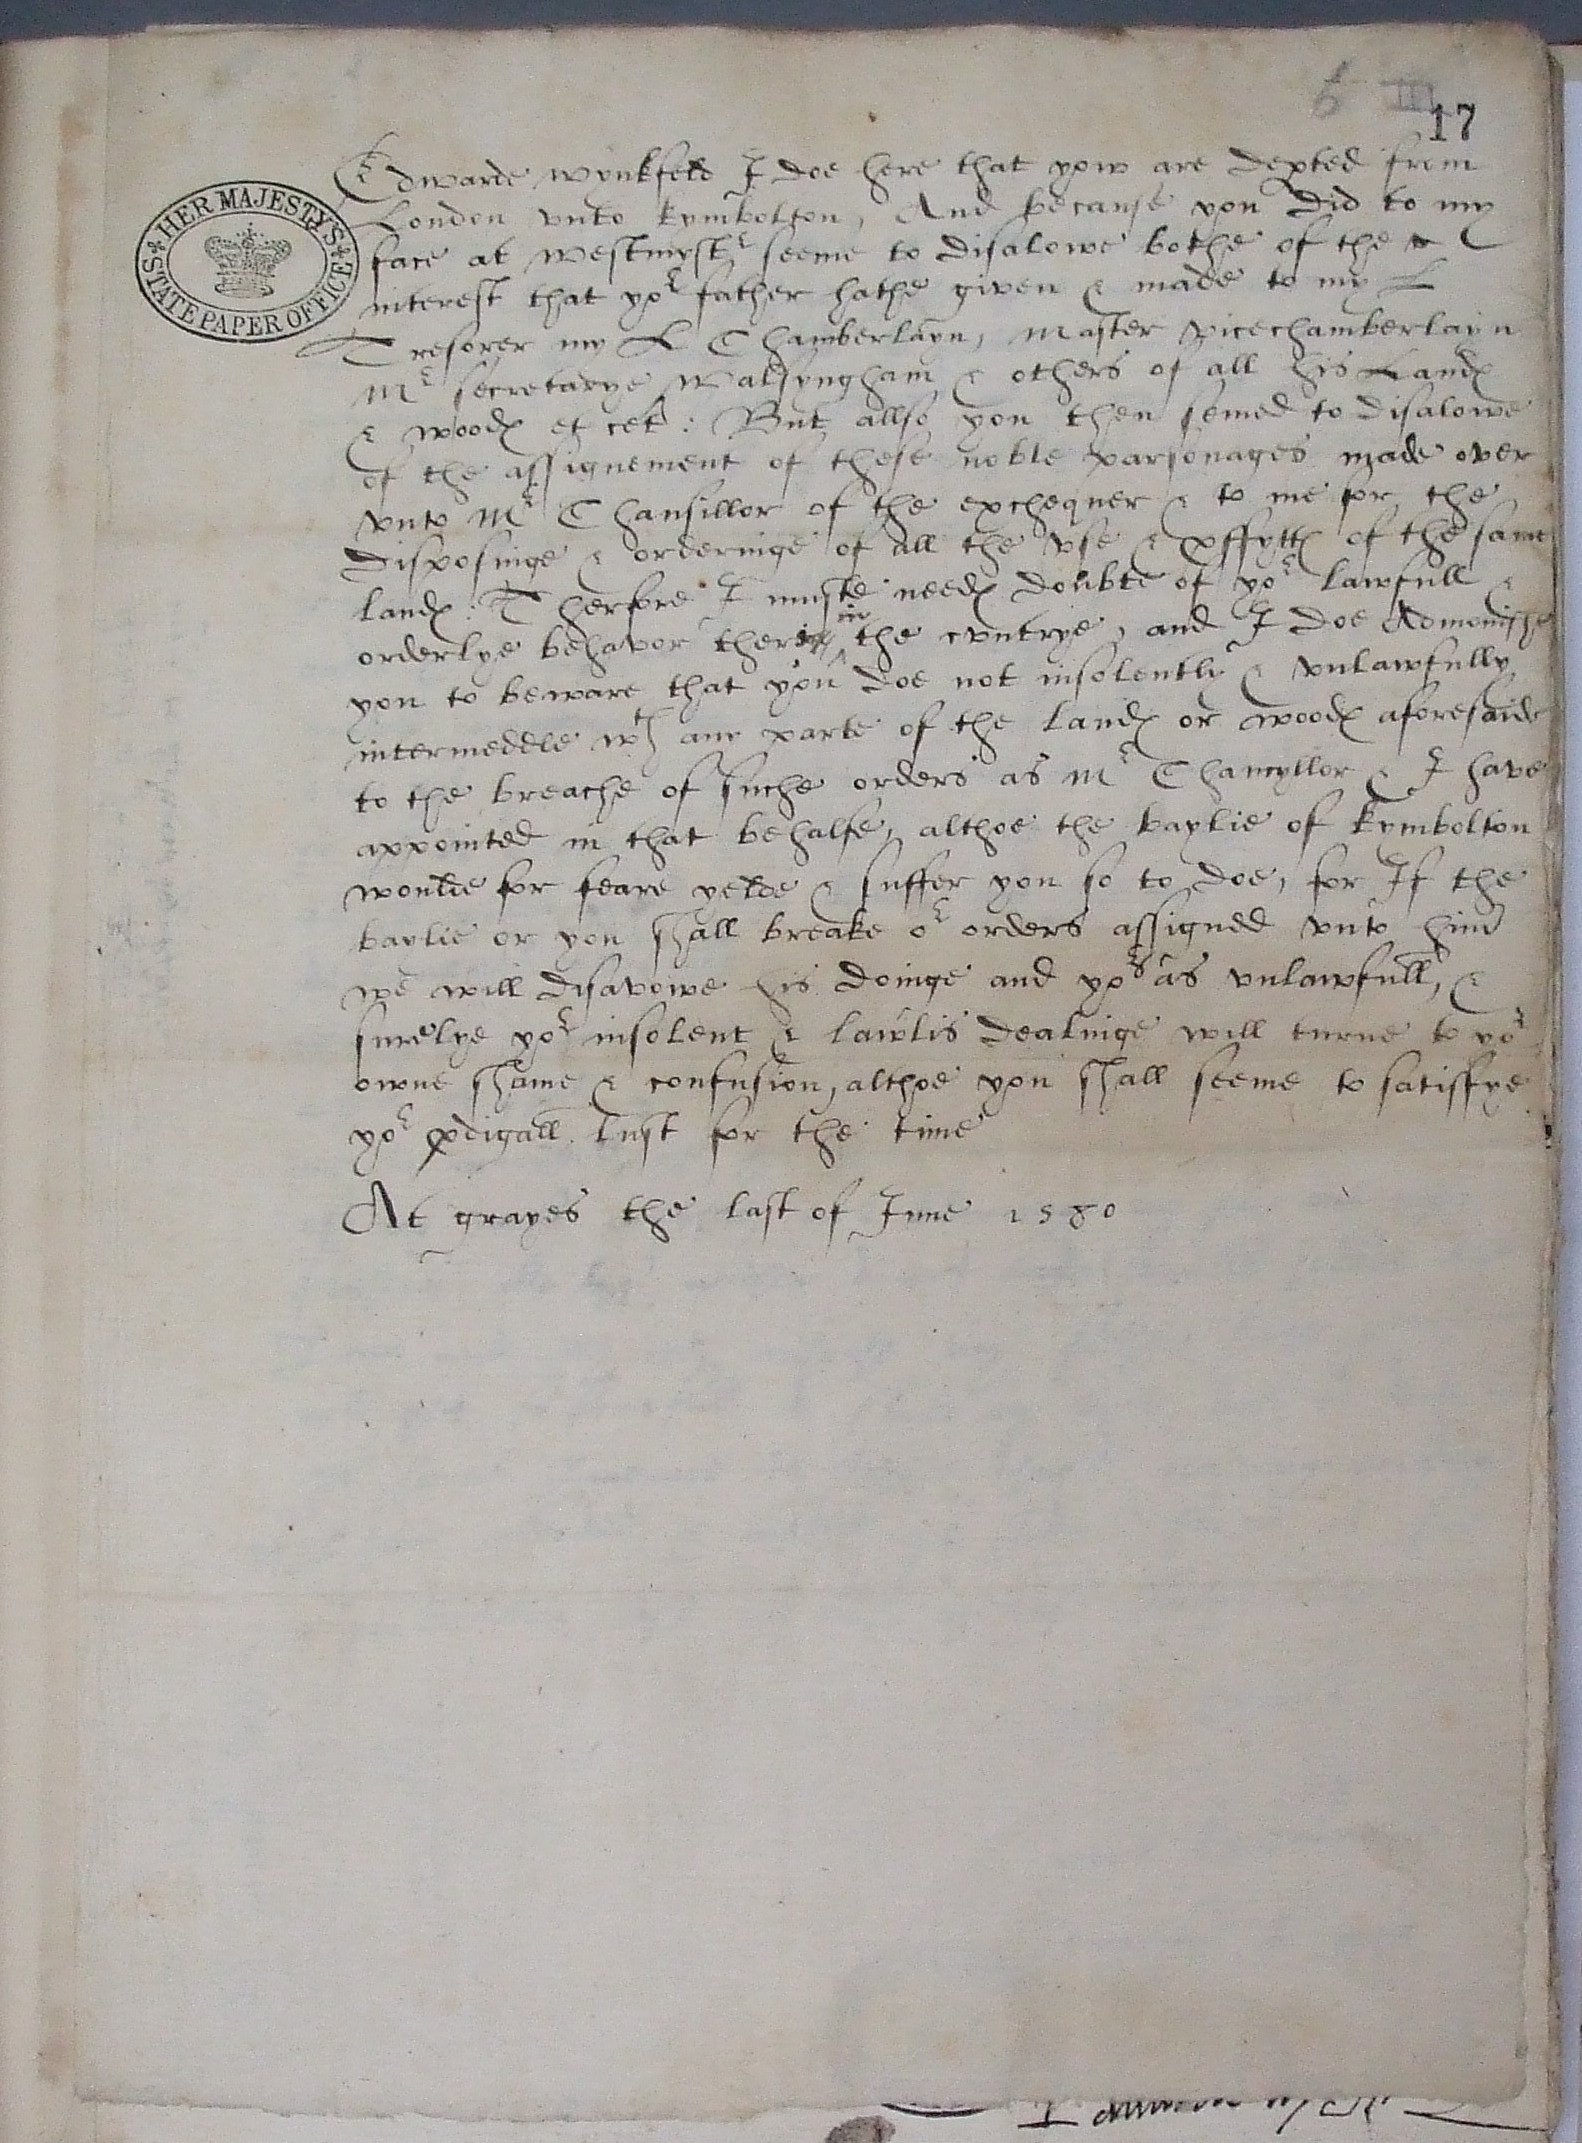 6 III
17
HER MAJESTY'S
STATE PAPER OFFICE
Edwarde wynkfeld I doe here that yow are depted from
London vnto kymbolton, And because you did to my
face at westmystr seeme to disalowe bothe of the
interest that yor father hathe given & made to my L
Tresorer my L Chamberlayn, master vicechamberlayn
Mr secretarye Walsyngham & others of all his Landes
& woodes et cet : But allso you then semed to disalowe
of the assignement of these noble parsonages made over
vnto Mr Chansillor of the exchequer & to me for the
disposinge & orderinge of all the vse & pffyttes of the same
landes : Therfore I muste needes doubte of yor lawfull &
orderlye behavor there in the cuntrye, and I doe Admonishe
you to beware that you doe not insolently & vnlawfully
intermeddle wth any parte of the landes or woodes aforesaide
to the breache of suche orders as Mr Chancyllor & I have
appointed in that behalfe, althoe the baylie of kymbolton
woulde for feare yelde & suffer you so to doe, for If the
baylie or you shall breake or orders assigned vnto him
we will disavowe his doinge and yors as vnlawfull, &
surelye yor insolent & lawlis dealinge will turne to yor
owne shame & confusion, althoe you shall seeme to satisfye
yor pdigall lust for the time
At grayes the last of June 1580